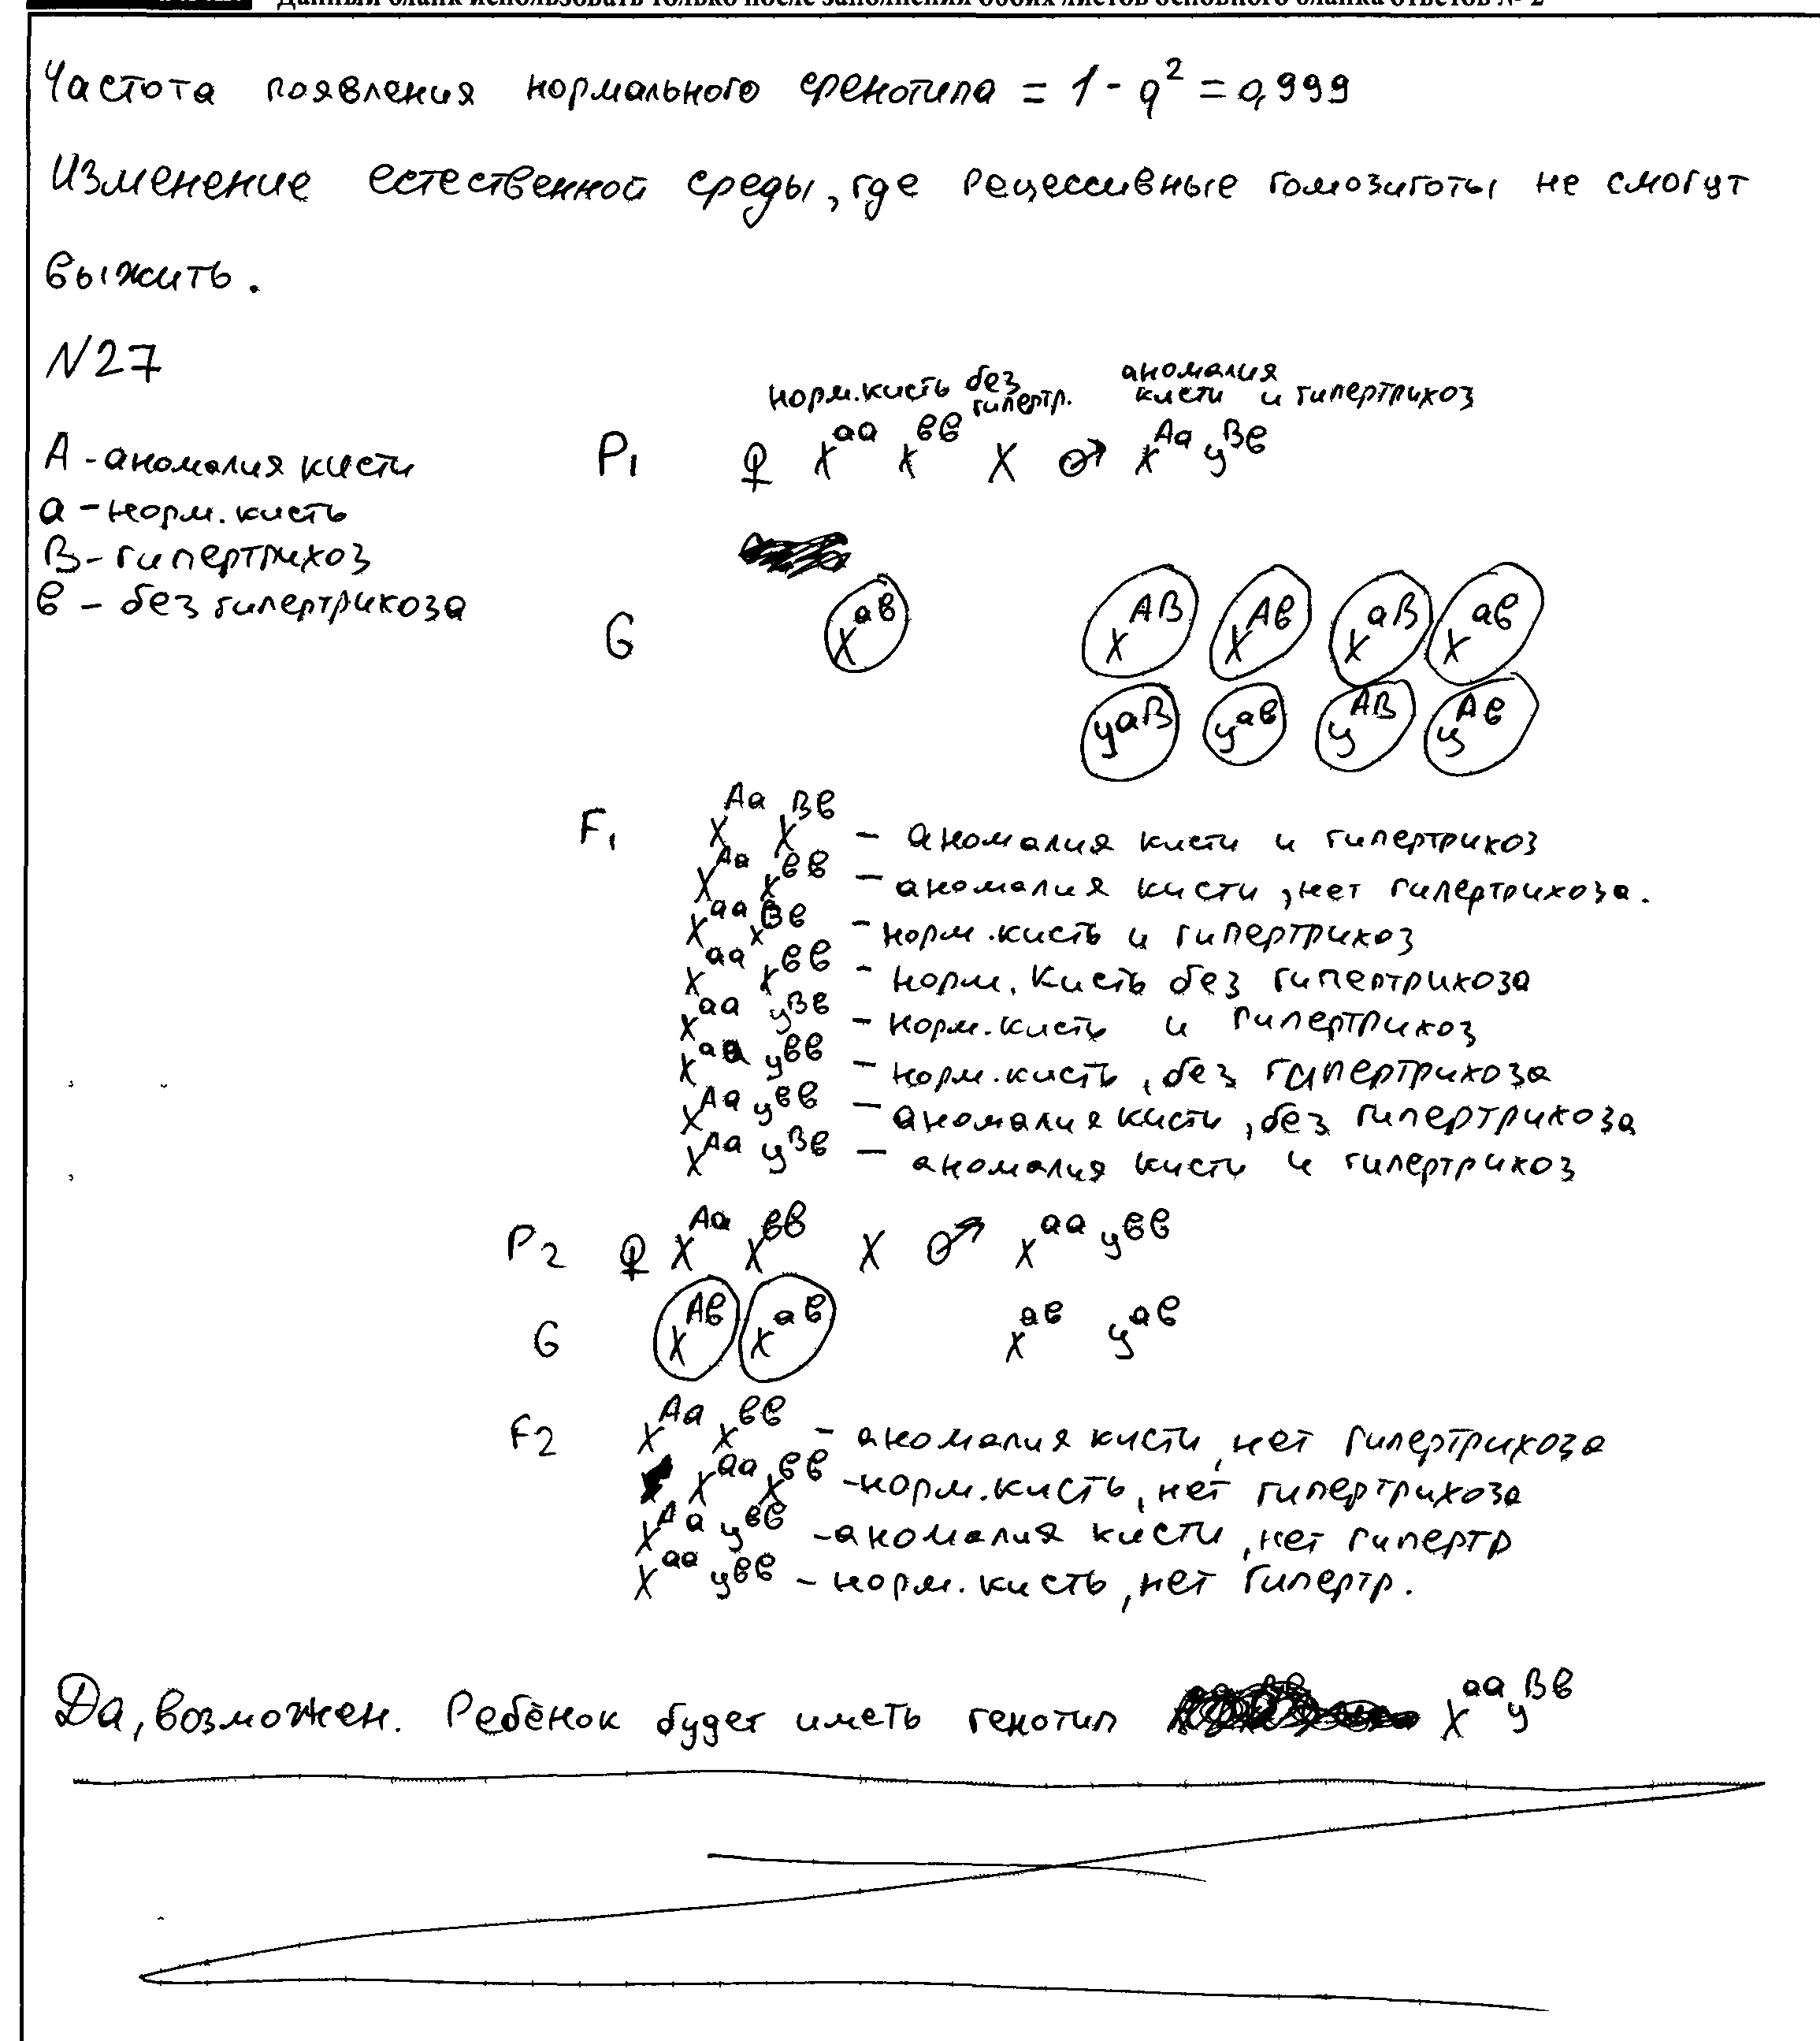 Данный бланк использовать только после заполнения обоих листов основного бланка ответов № 2
Частота появления нормального фенотипа = 1 - q² = 0,999
Изменение естественной среды, где рецессивные гомозиготы не смогут
выжить.
N27
норм. кисть без гипертр. аномалия кисти и гипертрихоз
А - аномалия кисти
а - норм. кисть
В - гипертрихоз
в - без гипертрихоза
P₁ ♀ X^aa X^вв X ♂ X^Aa y^Вв
G X^ав X^АВ X^Ав X^аВ X^ав
y^аВ y^ав y^АВ y^Ав
F₁ X^Aa X^Вв - аномалия кисти и гипертрихоз
X^Aa X^вв - аномалия кисти, нет гипертрихоза.
X^aa X^Вв - норм. кисть и гипертрихоз
X^aa X^вв - норм. кисть без гипертрихоза
X^aa y^Вв - норм. кисть и гипертрихоз
X^aa y^вв - норм. кисть, без гипертрихоза
X^Aa y^вв - аномалия кисти, без гипертрихоза
X^Aa y^Вв - аномалия кисти и гипертрихоз
P₂ ♀ X^Aa X^вв X ♂ X^aa y^вв
G X^Ав X^ав X^ав y^ав
F₂ X^Aa X^вв - аномалия кисти, нет гипертрихоза
X^aa X^вв - норм. кисть, нет гипертрихоза
X^Aa y^вв - аномалия кисти, нет гипертр
X^aa y^вв - норм. кисть, нет гипертр.
Да, возможен. Ребёнок будет иметь генотип X^aa y^Вв